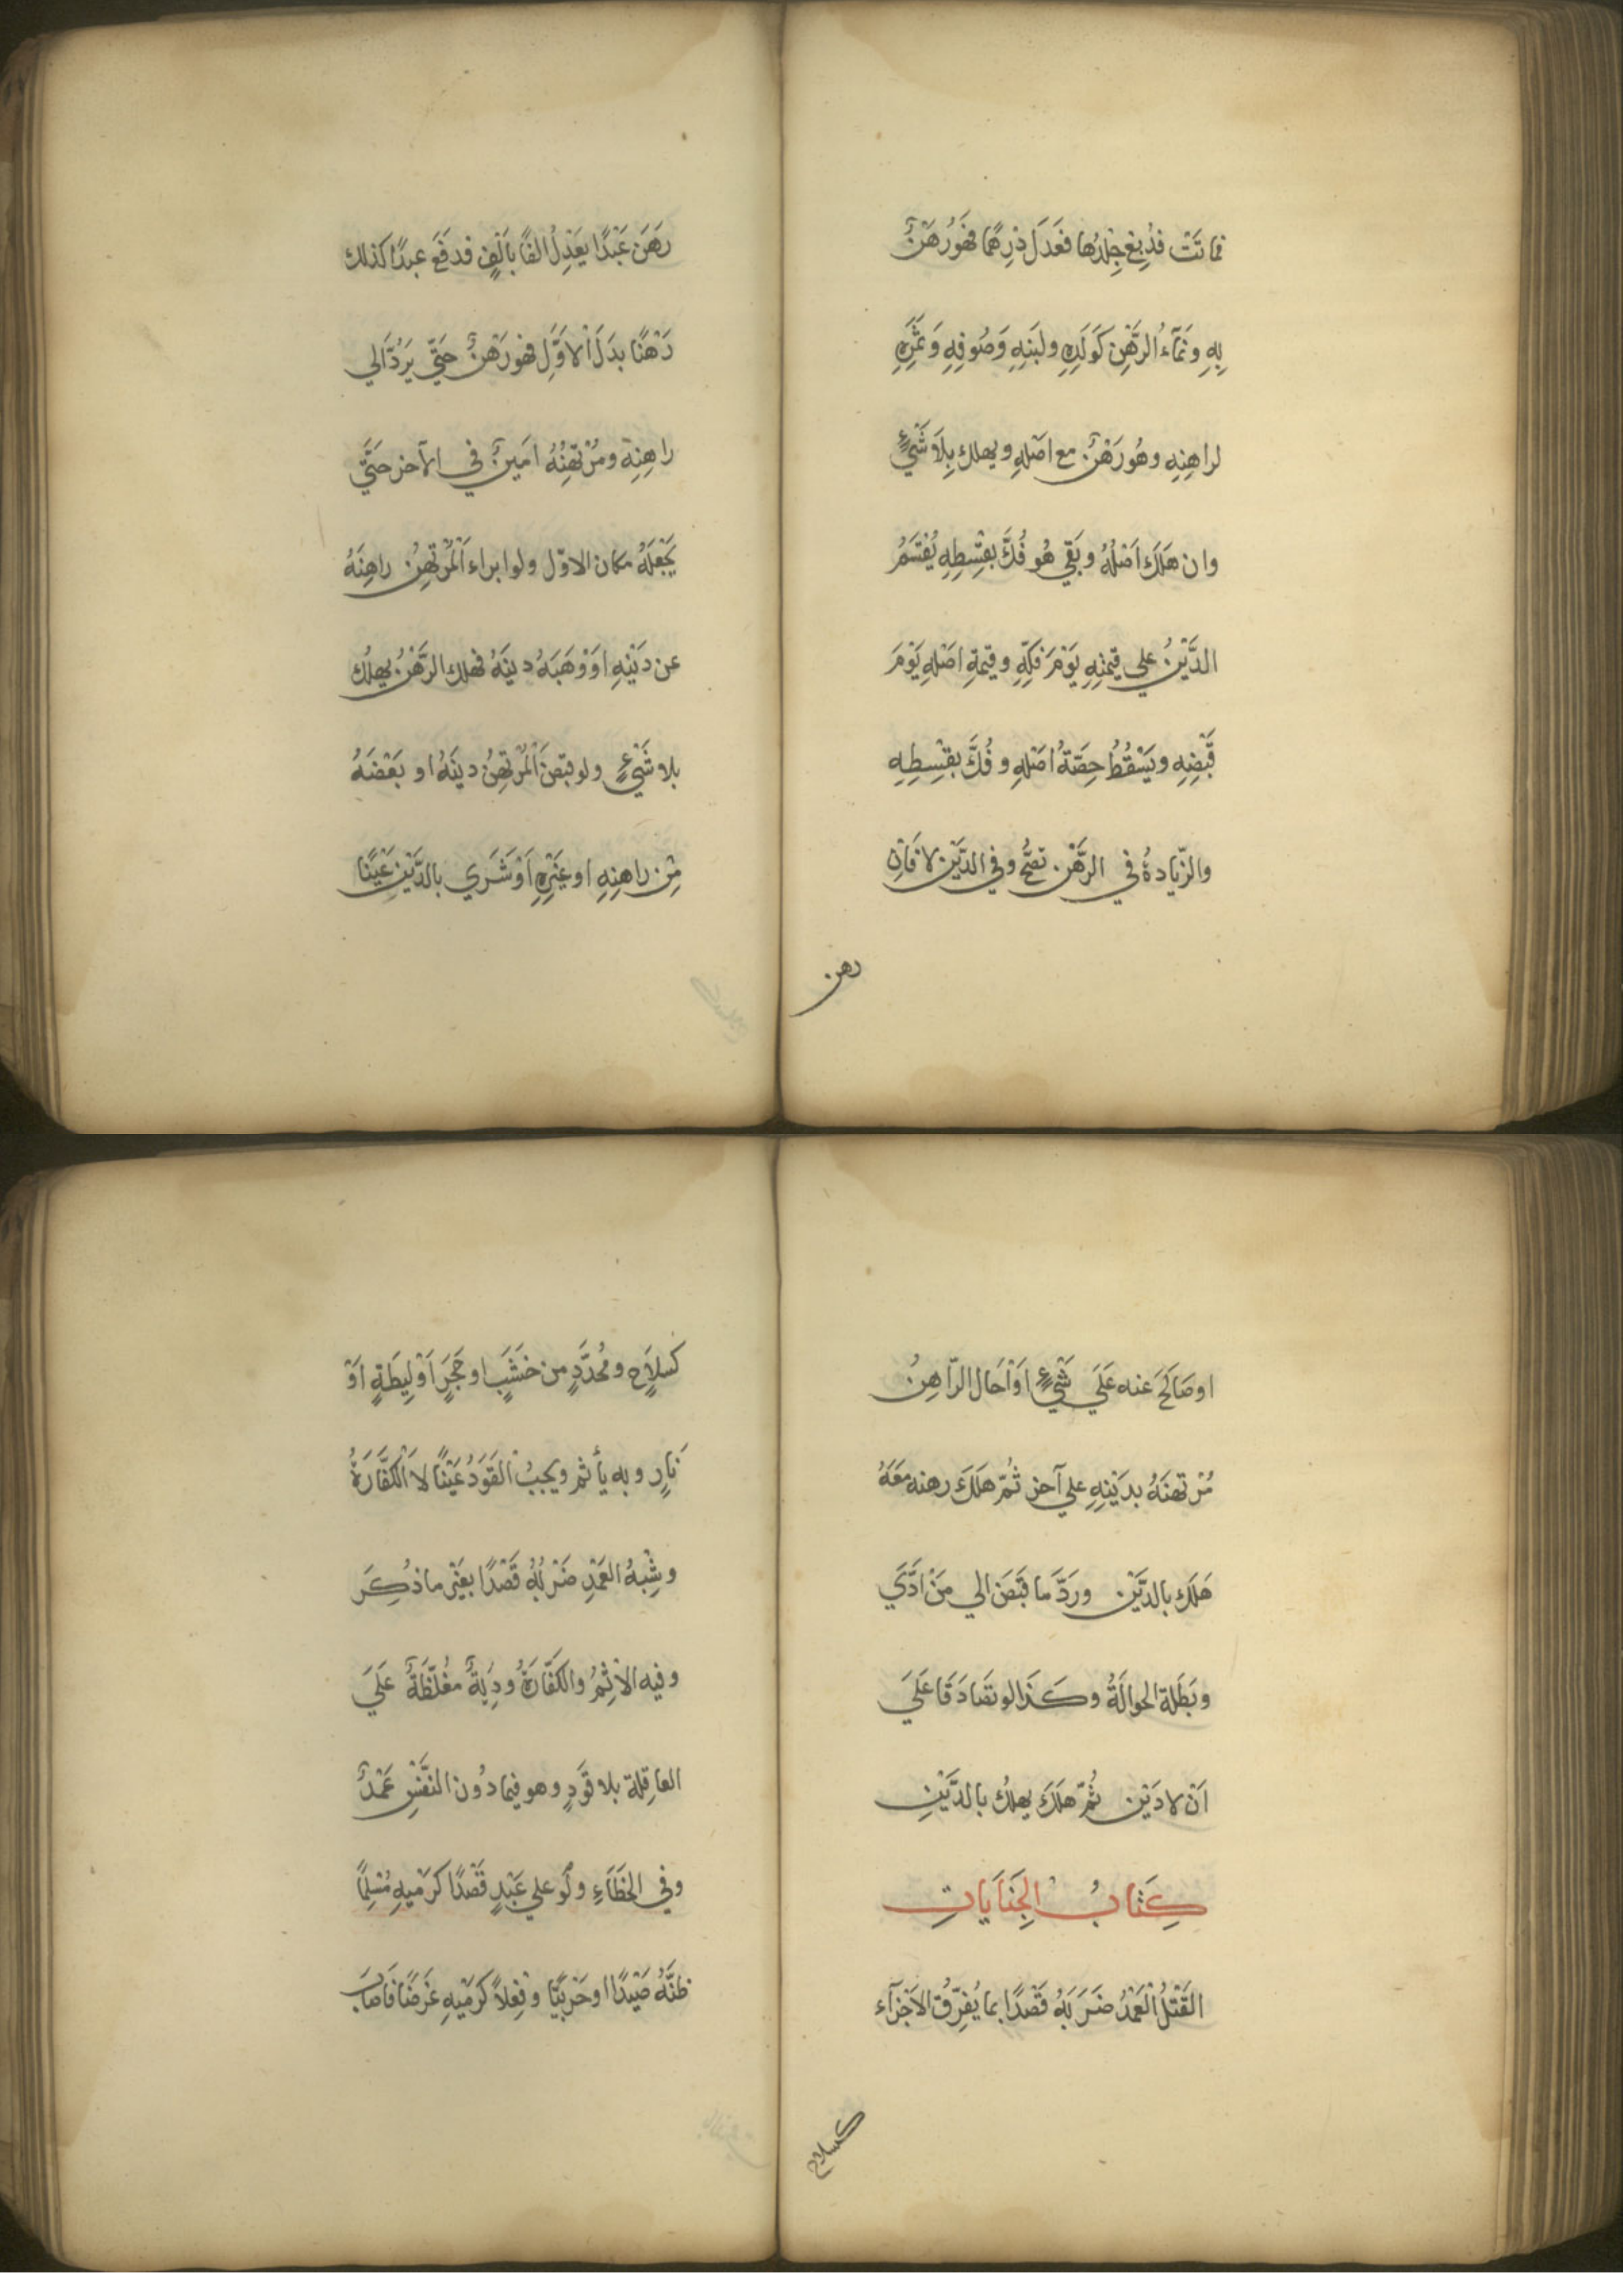 فماتَتْ فدُبِغ جِلدُها فعَدَلَ دِرهَمًا فهَوُ رَهْنٌ
بِهِ ونَمَآءُ الرَّهْنِ كَوَلَدِهِ ولبَنِهِ وَصُوفِهِ وَثَمَرِهِ
لراهِنِهِ وهُو رَهْنٌ مع اصَلِهِ ويهلك بِلَا شَيْءٍ
وان هَلَكَ اَصْلُهُ وبَقِي هُو فُكَّ بقِسْطِهِ يُقْسَمُ
الدَّيْنُ علي قيمَتِهِ يَوْمَ فَكِّهِ وقيمَةِ اصَلِهِ يَوْمَ
قَبْضِهِ ويَسْقُطُ حِصّةُ اصَلِهِ وفُكَّ بقِسْطِهِ
والزّيادةُ في الرَّهْنِ تصَحُّ وفي الدَّيْنِ لا فَاِن
رهن
رَهَن عَبْدًا يعَدِلُ الفًا بِاَلْفٍ فدفَعَ عبدًا كذلك
رَهْنًا بدَلَ الاَوَّلِ فهُو رَهْنٌ حَتّي يَرُدَّ الي
راهِنِهِ ومُرْتهِنُهُ امَينٌ في الآخر حَتّي
يَجْعَلَهُ مكان الاوّل ولو ابراء اَلْمُرْتهِنُ راهِنَهُ
عن دَيْنِهِ اوَ وَهَبَهُ دينَهُ فهلك الرَّهْنُ يهلُك
بلا شَيْءٍ ولو قبَضَ اَلْمُرْتهِنُ دينَهُ او بَعْضَهُ
مِن راهِنِهِ او غَيْرِهِ اَوْ شَرَي بالدَّيْنِ عَيْنًا
او صَالَحَ عنه عَلَي شَيْءٍ اَوْ اَحَال الرّاهِنُ
مُرْتهنَهُ بدَيْنِهِ علي آخر ثُمّ هَلَكَ رهنه مَعَهُ
هَلَك بالدَّيْنِ ورَدَّ ما قبَضَ الي مَنْ ادَّي
وبَطَلة الحوالَةُ وكَذا لو تصَادَقَا عَلَي
اَنْ لا دَيْن ثُمّ هَلَكَ يهلُك بالدَّيْنِ
كِتَابُ الجِنَايَاتِ
القَتْلُ الْعَمْدُ ضَرَبَهُ قَصْدًا بما يُفرِّقُ الاَجْزَآءَ
كسلاح
كَسِلَاحٍ ومُحدَّدٍ من خَشَبٍ او حَجَرٍ اَوْ لِيطَةٍ اَوْ
نَارٍ وبه يأثم ويجبُ القَوَدُ عَيْنًا لا اَلْكفَّارَةُ
وشِبْهُ العَمْدِ ضَرْبُهُ قَصْدًا بغَيْرِ ما ذُكِرَ
وفيه الاِثْمُ والكفَّارَةُ ودِيَةٌ مغُلّظَةٌ عَلَي
العاقِلة بلا قَوَدٍ وهو فيما دُون النفْسِ عَمْدٌ
وفي الخَطَاءِ ولَو علي عَبْدٍ قَصْدًا كرَمْيهِ مُسْلِمًا
ظنَّهُ صَيْدًا او حَرْبيًّا وفِعِلاً كرَمْيهِ غَرَضًا فَاصَابَ